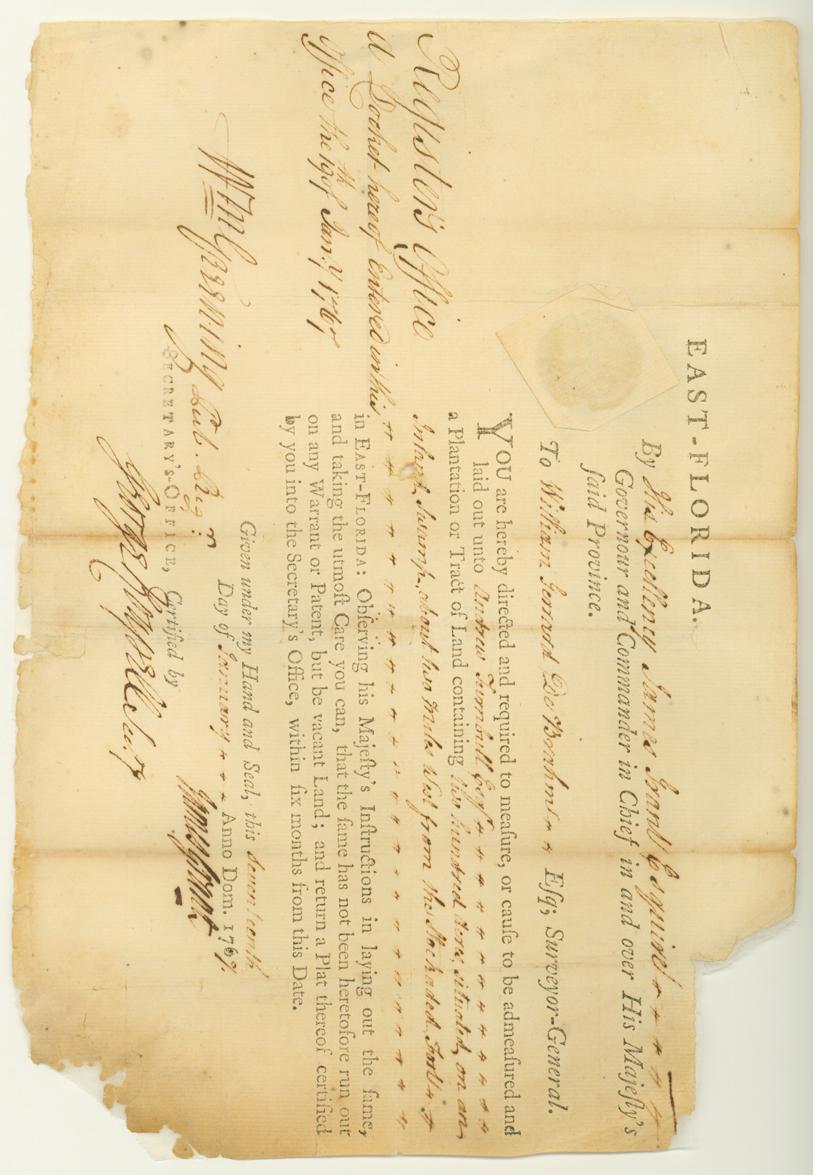 EAST-FLORIDA.
By His Excellency James Grant Esquire
Governour and Commander in Chief in and over His Majeſty's
ſaid Province.
To William Gerrard De Brahm Eſq; Surveyor-General.
YOU are hereby directed and required to meaſure, or cauſe to be admeaſured and
laid out unto Andrew Turnbull Esqr
a Plantation or Tract of Land containing two hundred Acres, situated on an
Inland Swamp, about two Miles West from the Stockaded Fort
in EAST-FLORIDA: Obſerving his Majeſty's Inſtructions in laying out the ſame,
and taking the utmoſt Care you can, that the ſame has not been heretofore run out
on any Warrant or Patent, but be vacant Land; and return a Plat thereof certified
by you into the Secretary's Office, within ſix months from this Date.
Given under my Hand and Seal, this Seventeenth
Day of January Anno Dom. 1767.
James Grant
SECRETARY'S-OFFICE, Certified by
Register's Office
A Docket hereof Entered in this
Office the 19th of Jany 1767
Wm Greening Pub. Reg:r